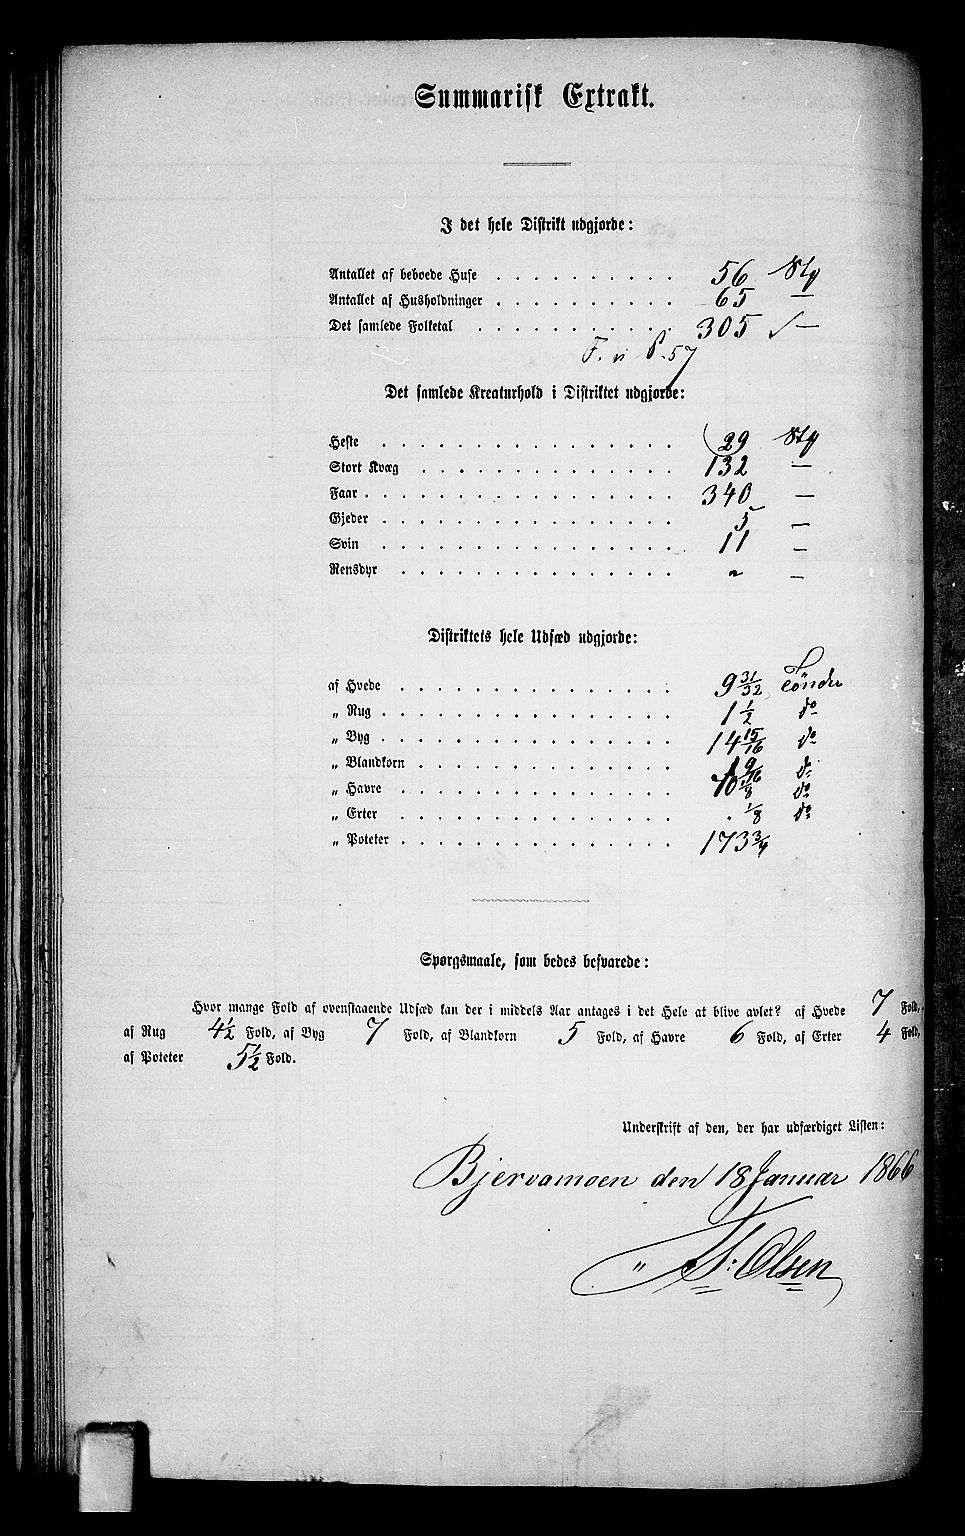 Summarisk Extrakt.
I det hele Distrikt udgjorde:
Antallet af beboede Huse . . . . . . . . . . 56 Stk
Antallet af Husholdninger . . . . . . . . . . 65 —
Det samlede Folketal . . . . . . . . . . . 305 —
F. vi P. 57
Det samlede Kreaturhold i Distriktet udgjorde:
Heste . . . . . . . . . . . . . . . . 29 Stk
Stort Kvæg . . . . . . . . . . . . . . 132 —
Faar . . . . . . . . . . . . . . . . . 340 —
Gjeder . . . . . . . . . . . . . . . . 5 —
Svin . . . . . . . . . . . . . . . . 11 —
Rensdyr . . . . . . . . . . . . . . . „ —
Distriktets hele Udsæd udgjorde:
af Hvede . . . . . . . . . . . . . . . 9 31/32 Tönder
„ Rug . . . . . . . . . . . . . . . . 1 1/2 do
„ Byg . . . . . . . . . . . . . . . . 14 15/16 do
„ Blandkorn . . . . . . . . . . . . . . 9/16 do
„ Havre . . . . . . . . . . . . . . . 10 /8 do
„ Erter . . . . . . . . . . . . . . . „ 1/8 do
„ Poteter . . . . . . . . . . . . . . . 173 3/4
Spørgsmaale, som bedes besvarede:
Hvor mange Fold af ovenstaaende Udsæd kan der i middels Aar antages i det Hele at blive avlet? af Hvede 7 Fold,
af Rug 4 1/2 Fold, af Byg 7 Fold, af Blandkorn 5 Fold, af Havre 6 Fold, af Erter 4 Fold,
af Poteter 5 1/2 Fold.
Underskrift af den, der har udfærdiget Listen:
Bjervamoen den 18 Januar 1866
Olsen